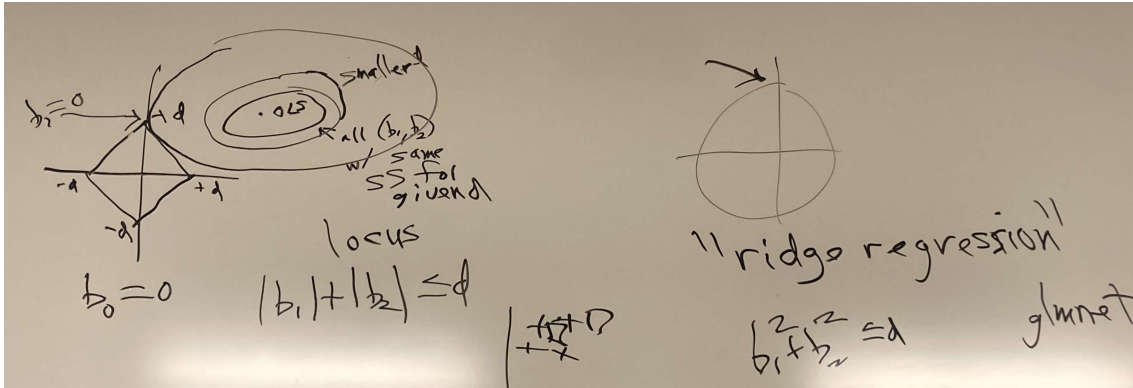 b₂=0
+d
smaller d
OLS
all (b₁, b₂)
w/ same
SS for
given d
-d
+d
-d
locus
b₀=0
|b₁|+|b₂| ≤ d
"ridge regression"
b₁²+b₂² ≤ d
glmnet